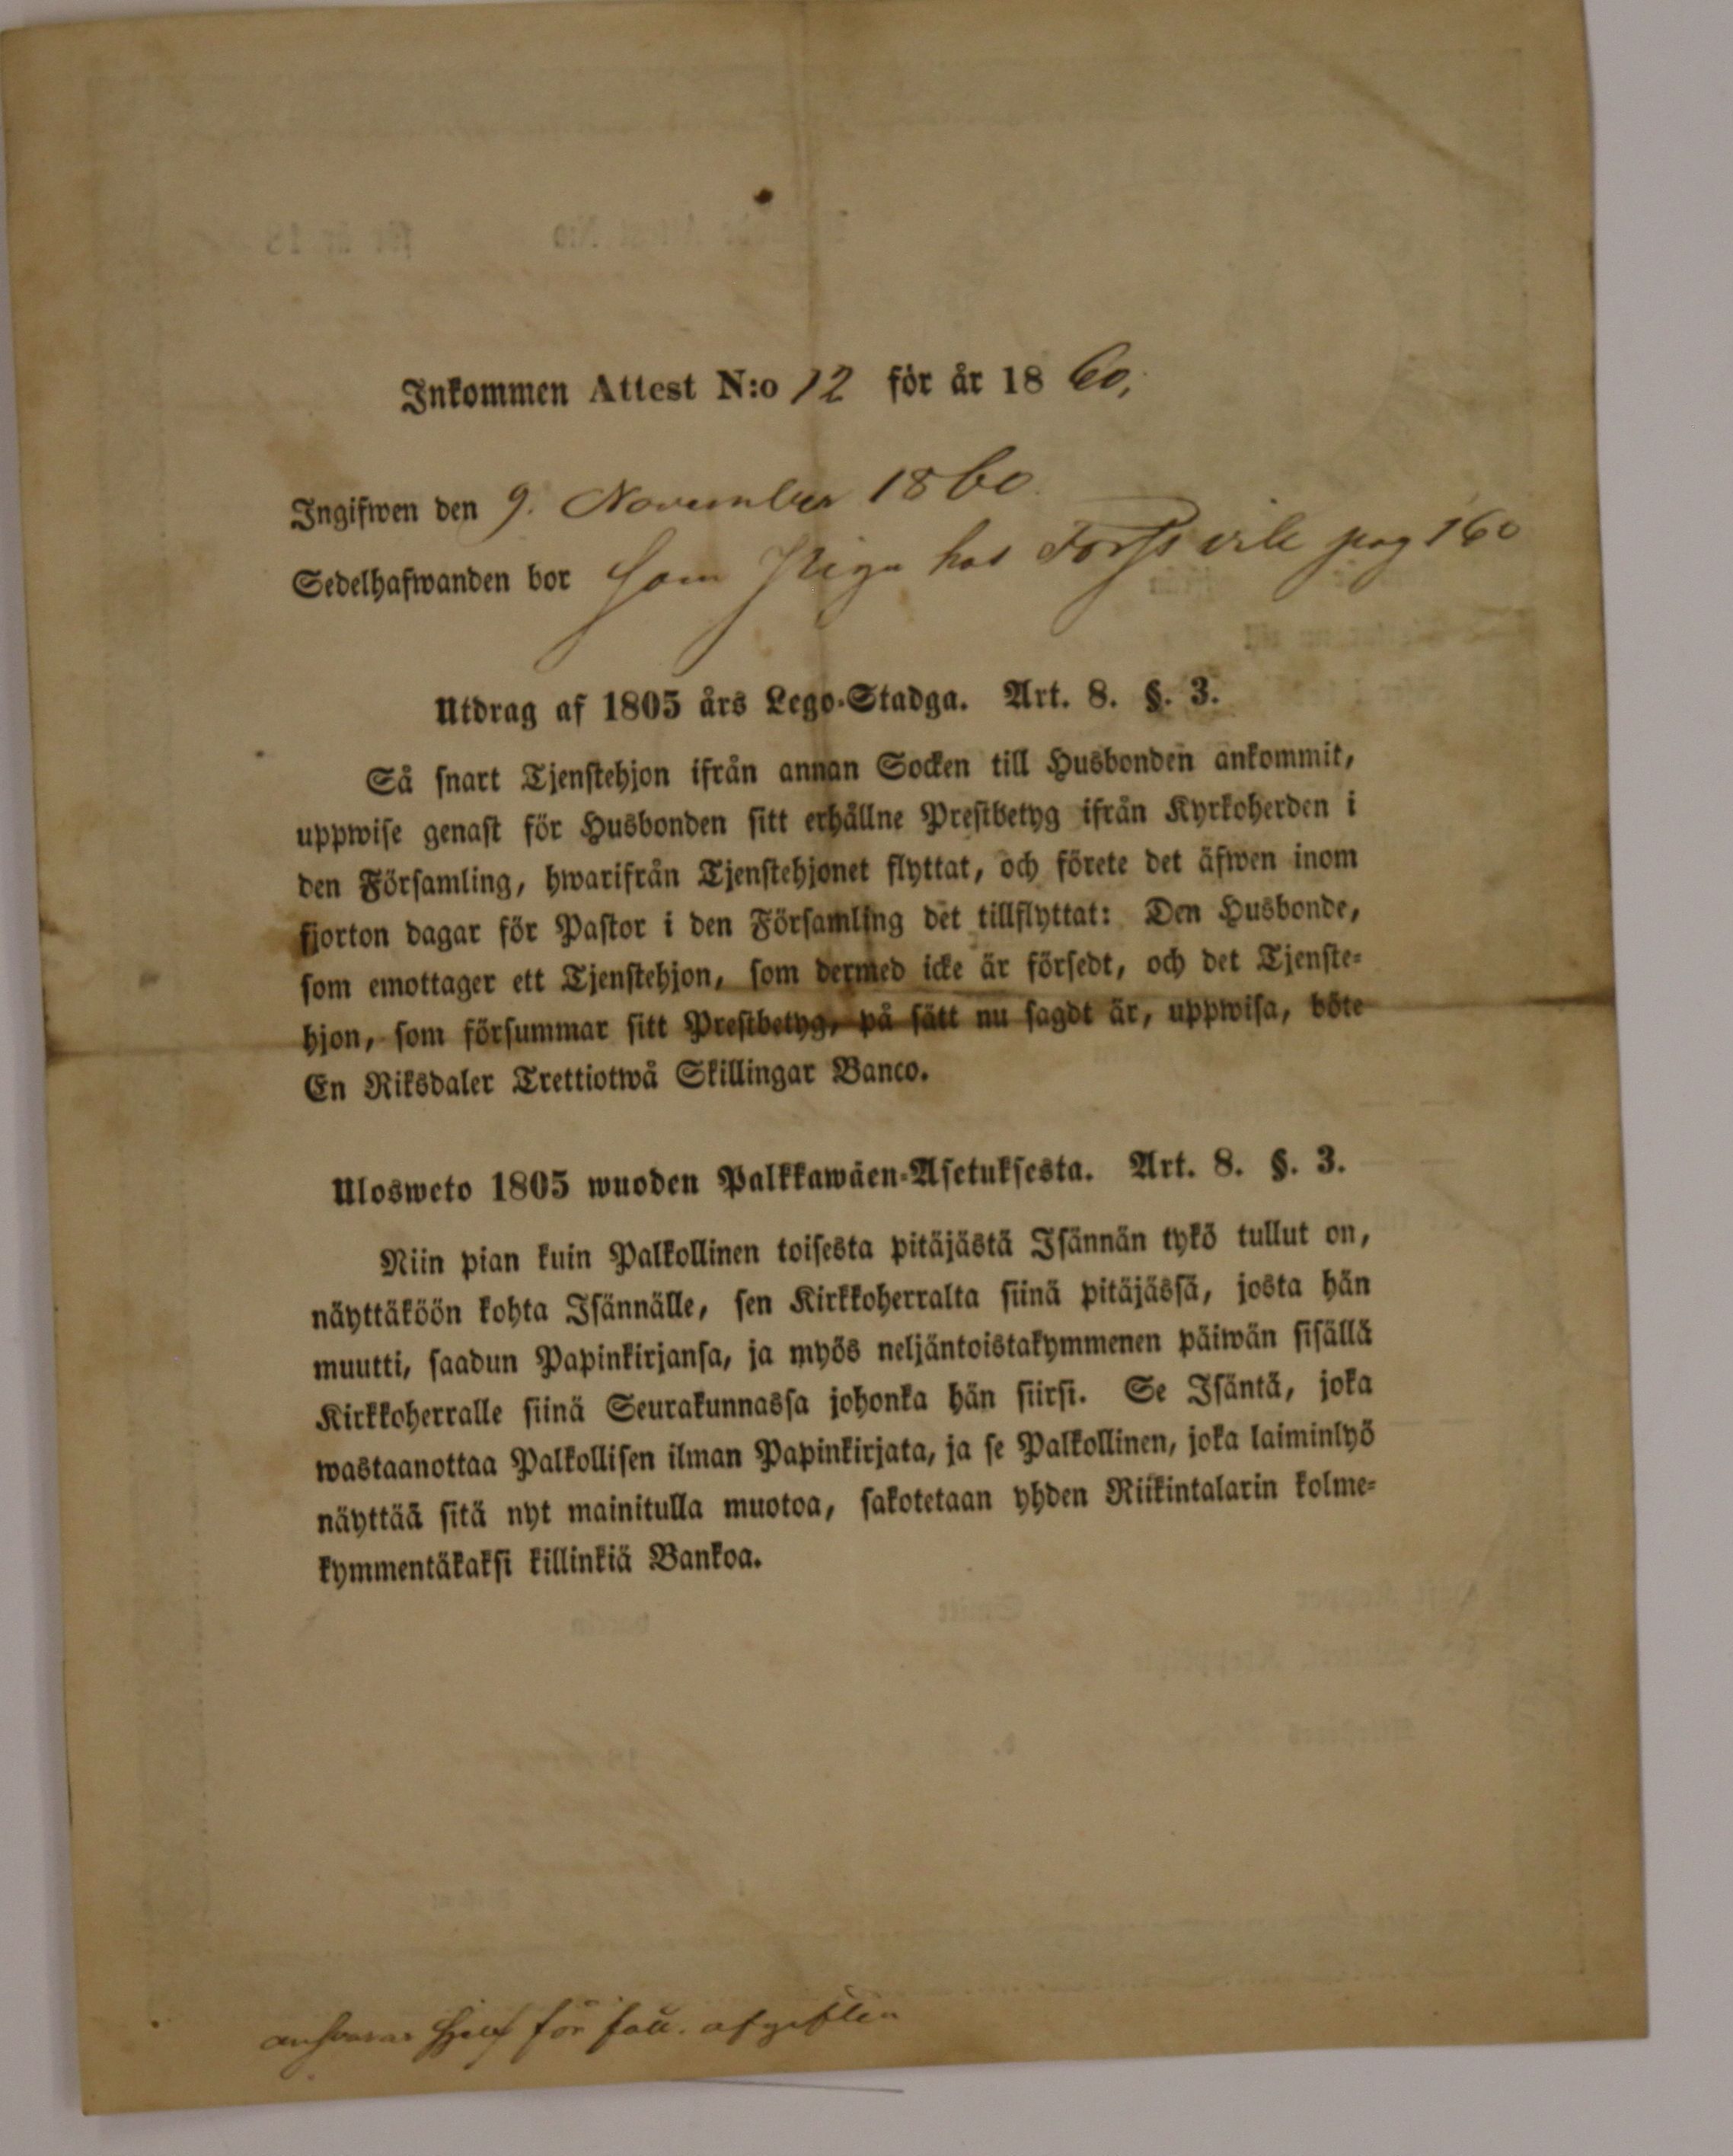 Inkommen Attest N:o 12 för år 18 60,
Ingifwen den 9. November 1860.
Sedelhafwanden bor som Piga hos pag 160
Utdrag af 1805 års Lego-Stadga. Art. 8. §. 3.
Så snart Tjenstehjon ifrån annan Socken till Husbonden ankommit,
uppwise genast för Husbonden sitt erhållne Prestbetyg ifrån Kyrkoherden i
den Församling, hwarifrån Tjenstehjonet flyttat, och förete det äfwen inom
fjorton dagar för Pastor i den Församling det tillflyttat: Den Husbonde,
som emottager ett Tjenstehjon, som dermed icke är försedt, och det Tjenste-
hjon, som försummar sitt Prestbetyg, på sätt nu sagdt är, uppwisa, böte
En Riksdaler Trettiotwå Skillingar Banco.
Ulosweto 1805 wuoden Palkkawäen-Asetuksesta. Art. 8. §. 3.
Niin pian kuin Palkollinen toisesta pitäjästä Isännän tykö tullut on,
näyttäköön kohta Isännälle, sen Kirkkoherralta siinä pitäjässä, josta hän
muutti, saadun Papinkirjansa, ja myös neljäntoistakymmenen päiwän sisällä
Kirkkoherralle siinä Seurakunnassa johonka hän siirsi. Se Isäntä, joka
wastaanottaa Palkollisen ilman Papinkirjata, ja se Palkollinen, joka laiminlyö
näyttää sitä nyt mainitulla muotoa, sakotetaan yhden Riikintalarin kolme-
kymmentäkaksi killinkiä Bankoa.
ansvarar sjelf för afgiften